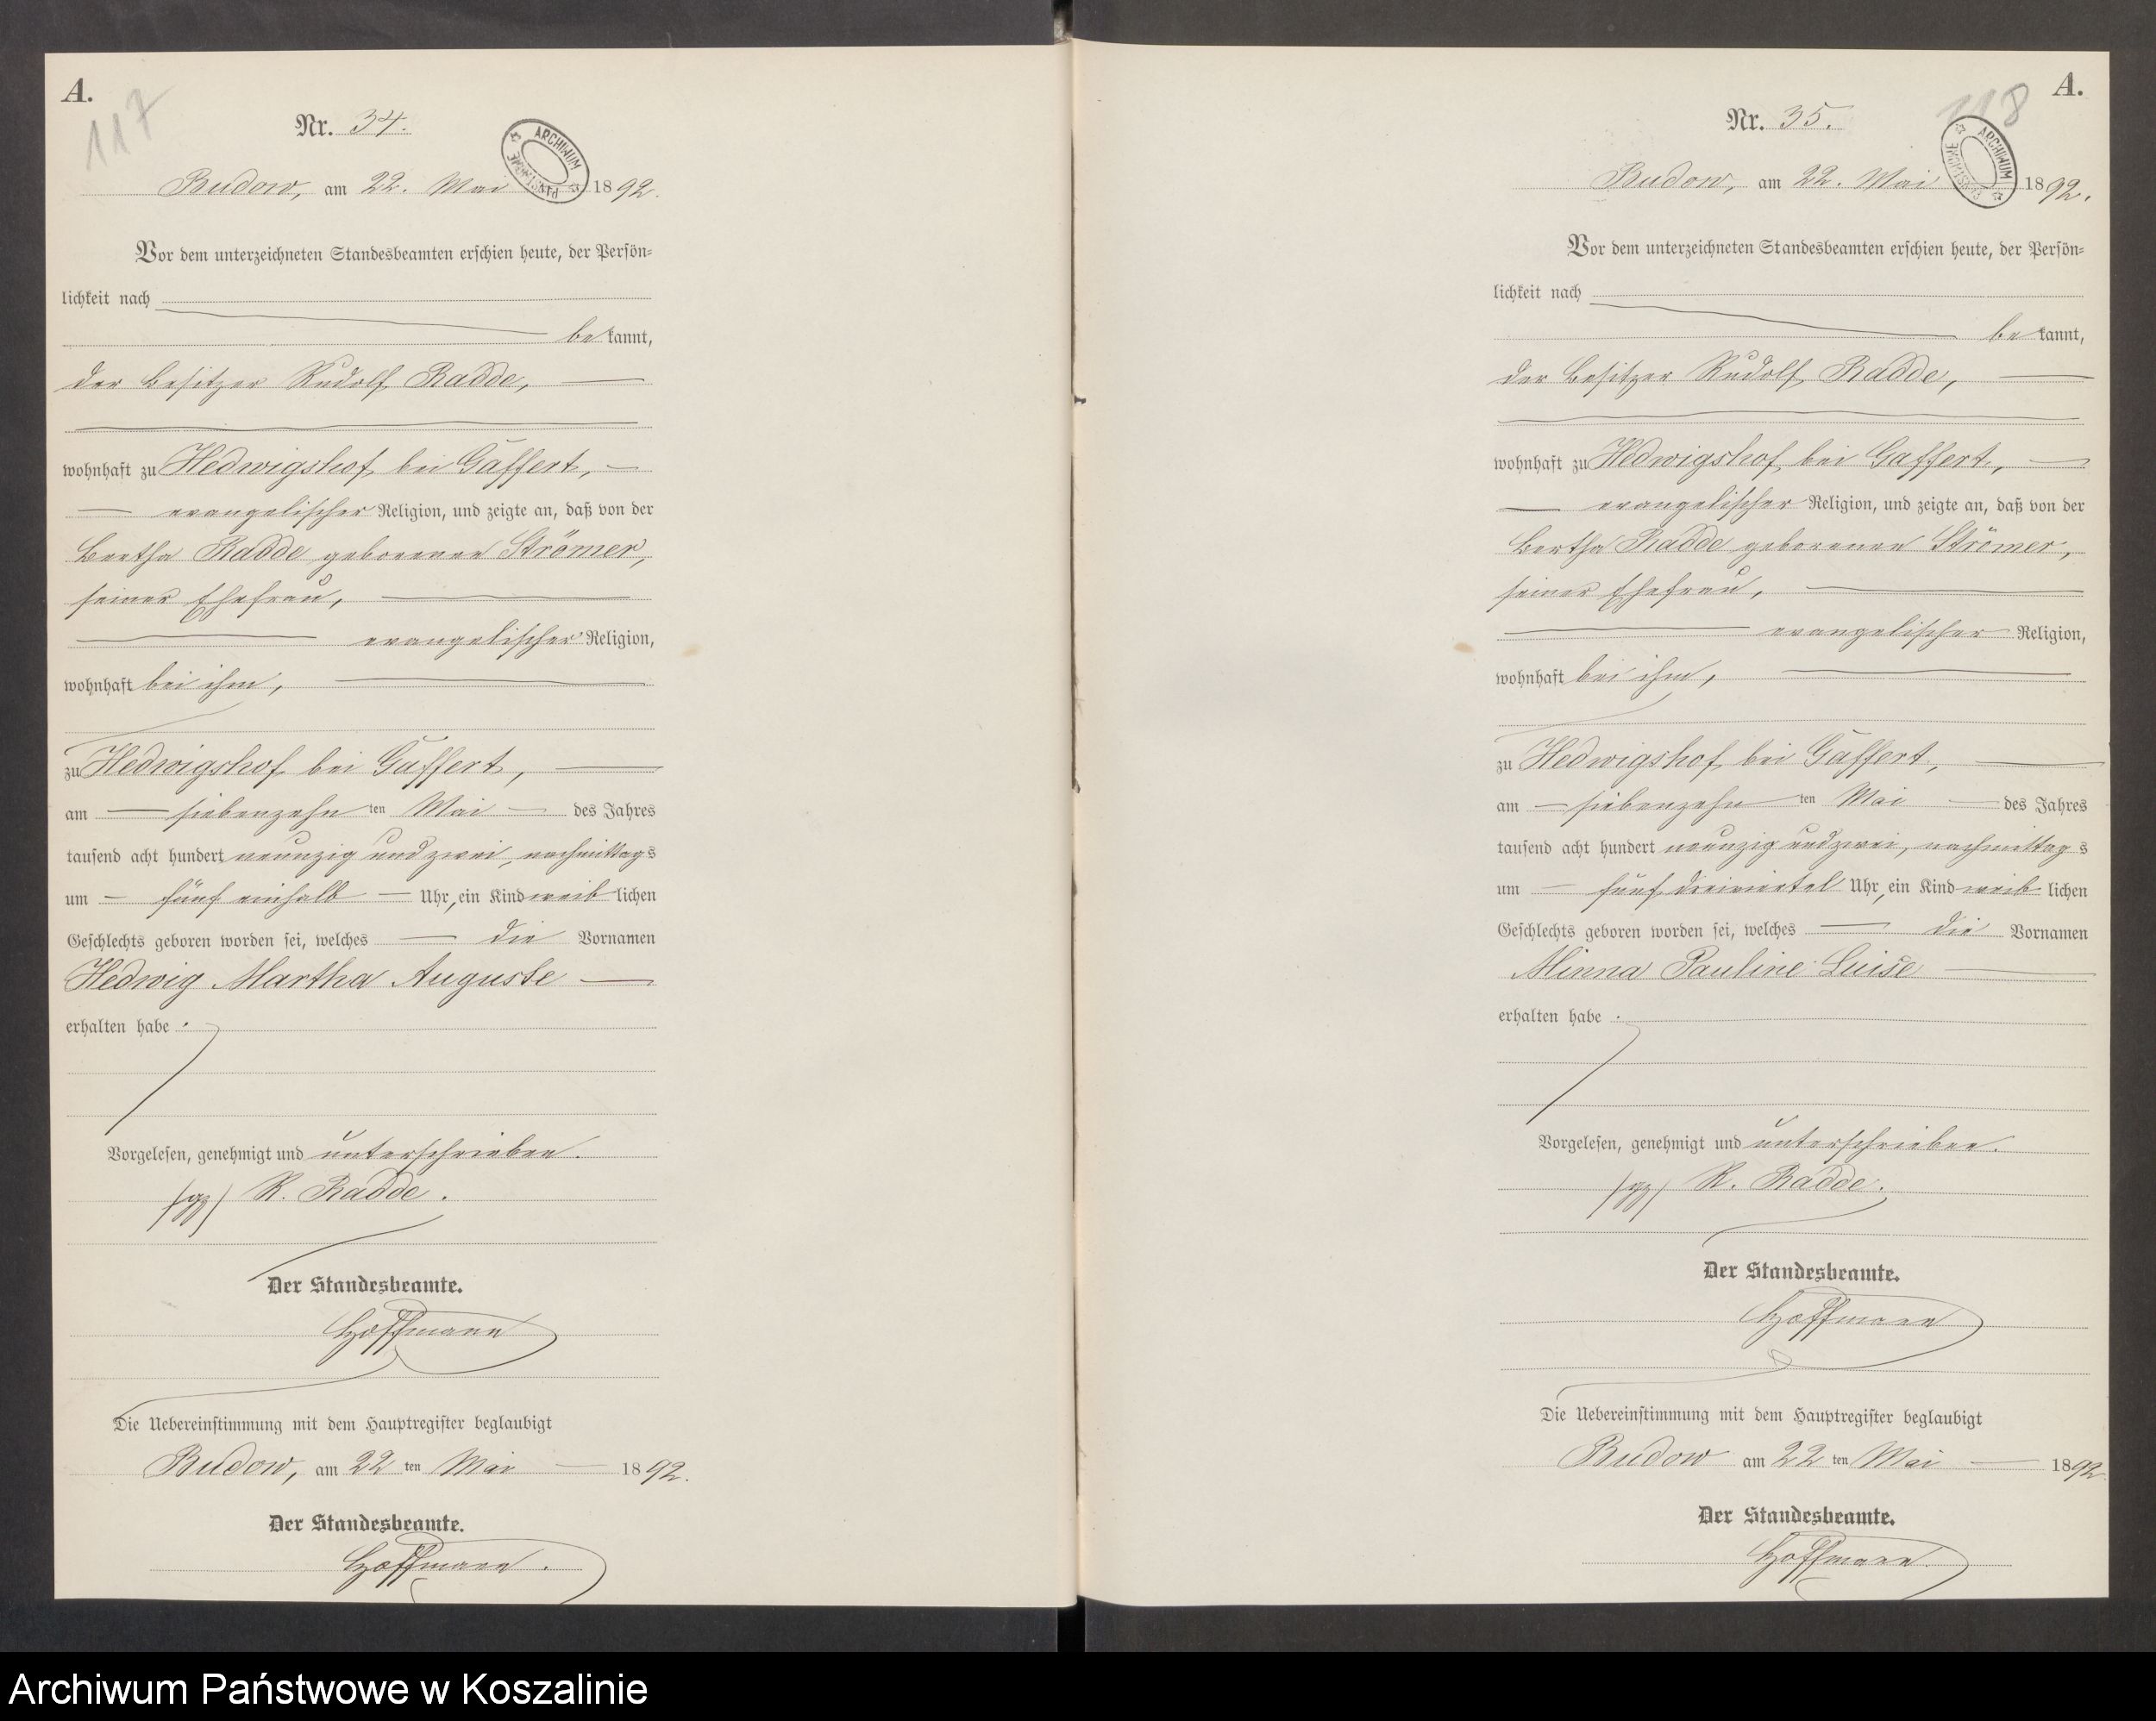 A.
117
Nr. 34.
ARCHIWUM PAŃSTWOWE
Budow, am 22. Mai 1892.
Vor dem unterzeichneten Standesbeamten erschien heute, der Persön-
lichkeit nach
bekannt,
der Besitzer Rudolf Radde,
wohnhaft zu Hedwigshof bei Gaffert,
evangelischer Religion, und zeigte an, daß von der
Bertha Radde geborenen Strömer,
seiner Ehefrau,
evangelischer Religion,
wohnhaft bei ihm,
zu Hedwigshof bei Gaffert,
am siebenzehnten Mai des Jahres
tausend acht hundert neunzig und zwei, nachmittags
um fünf einhalb Uhr, ein Kind weiblichen
Geschlechts geboren worden sei, welches die Vornamen
Hedwig Martha Auguste
erhalten habe.
Vorgelesen, genehmigt und unterschrieben.
(gz) R. Radde.
Der Standesbeamte.
Hoffmann
Die Uebereinstimmung mit dem Hauptregister beglaubigt
Budow, am 22ten Mai 1892.
Der Standesbeamte.
Hoffmann.
A.
118
Nr. 35.
ARCHIWUM PAŃSTWOWE
Budow, am 22. Mai 1892.
Vor dem unterzeichneten Standesbeamten erschien heute, der Persön-
lichkeit nach
bekannt,
der Besitzer Rudolf Radde,
wohnhaft zu Hedwigshof bei Gaffert,
evangelischer Religion, und zeigte an, daß von der
Bertha Radde geborenen Strömer,
seiner Ehefrau,
evangelischer Religion,
wohnhaft bei ihm,
zu Hedwigshof bei Gaffert,
am siebenzehnten Mai des Jahres
tausend acht hundert neunzig und zwei, nachmittags
um fünf dreiviertel Uhr, ein Kind weiblichen
Geschlechts geboren worden sei, welches die Vornamen
Minna Pauline Luise
erhalten habe.
Vorgelesen, genehmigt und unterschrieben.
(gz) R. Radde.
Der Standesbeamte.
Hoffmann
Die Uebereinstimmung mit dem Hauptregister beglaubigt
Budow am 22ten Mai 1892
Der Standesbeamte.
Hoffmann
Archiwum Państwowe w Koszalinie